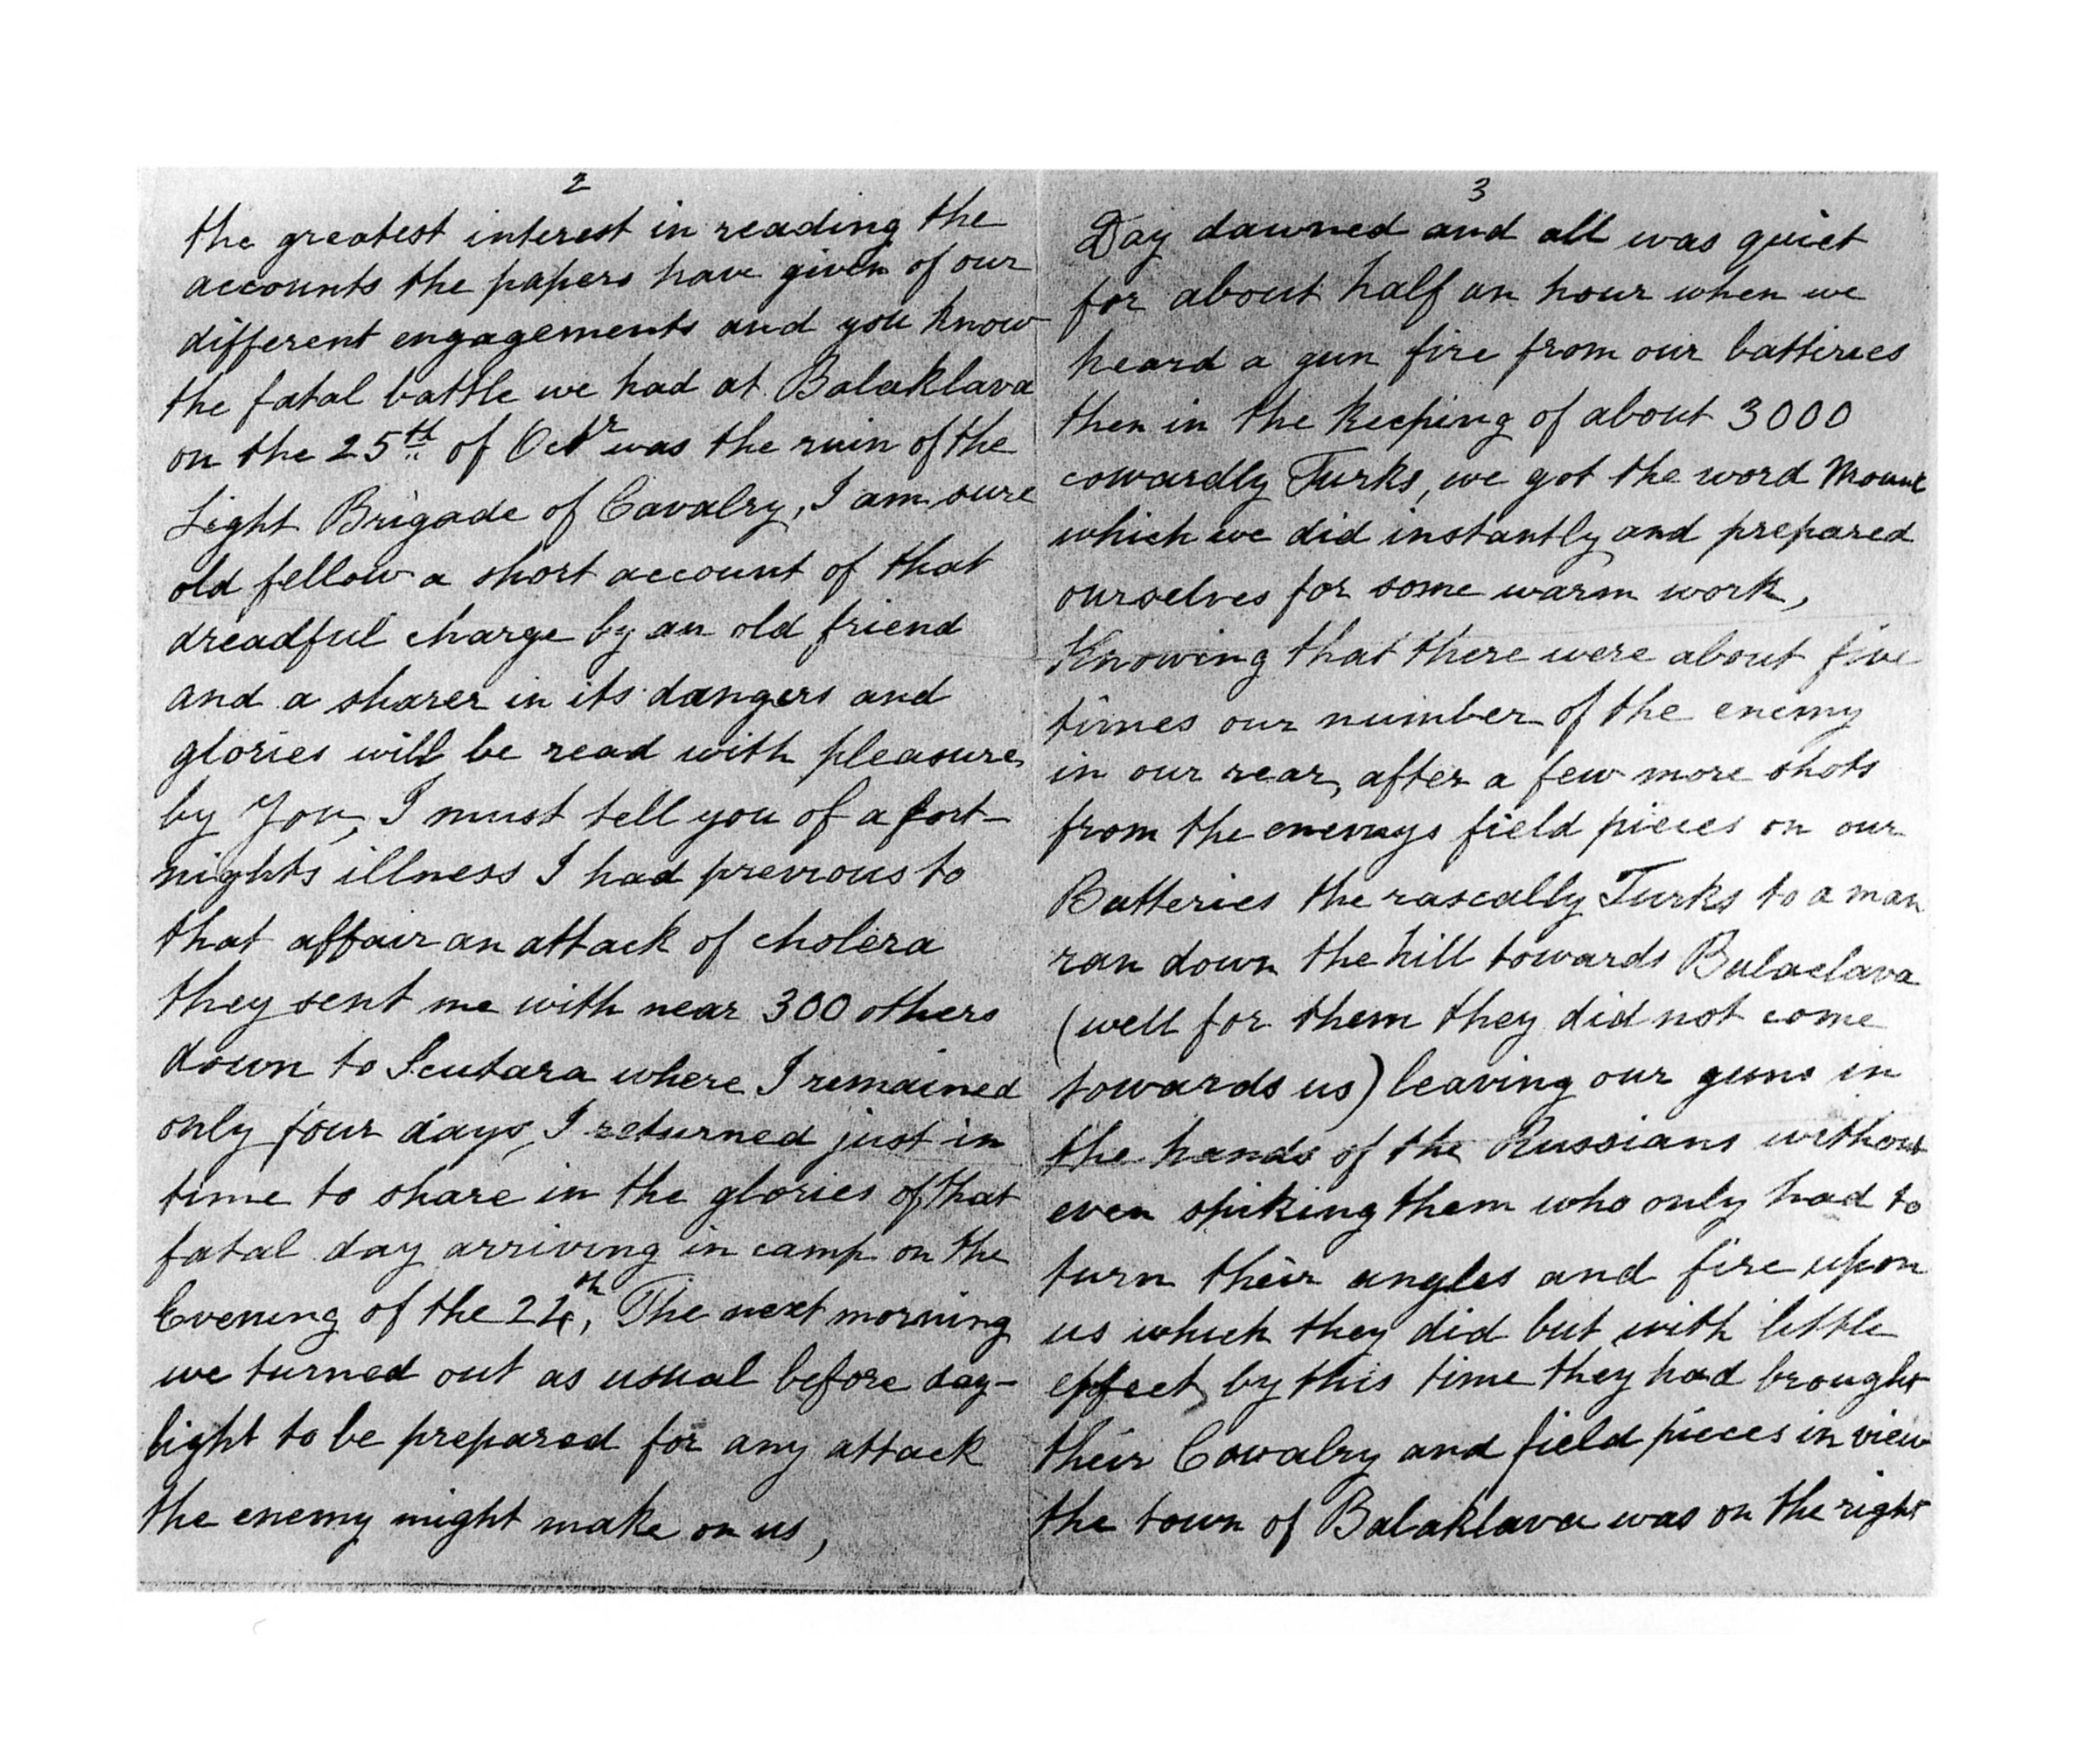 2
the greatest interest in reading the
accounts the papers have given of our
different engagements and you know
the fatal battle we had at Balaklava
on the 25th of Octr was the ruin of the
Light Brigade of Cavalry, I am sure
old fellow a short account of that
dreadful charge by an old friend
and a sharer in its dangers and
glories will be read with pleasure
by You, I must tell you of a fort-
nights illness I had previous to
that affair an attack of cholera
they sent me with near 300 others
down to Scutara where I remained
only four days, I returned just in
time to share in the glories of that
fatal day arriving in camp on the
Evening of the 24th, The next morning
we turned out as usual before day-
light to be prepared for any attack
the enemy might make on us,
3
Day dawned and all was quiet
for about half an hour when we
heard a gun fire from our batteries
then in the keeping of about 3000
cowardly Turks, we got the word Mount
which we did instantly and prepared
ourselves for some warm work,
Knowing that there were about five
times our number of the enemy
in our rear, after a few more shots
from the enemys field pieces on our
Batteries the rascally Turks to a man
ran down the hill towards Balaclava
(well for them they did not come
towards us) leaving our guns in
the hands of the Russians without
even spiking them who only had to
turn their angles and fire upon
us which they did but with little
effect, by this time they had brought
their Cavalry and field pieces in view
the town of Balaklava was on the right